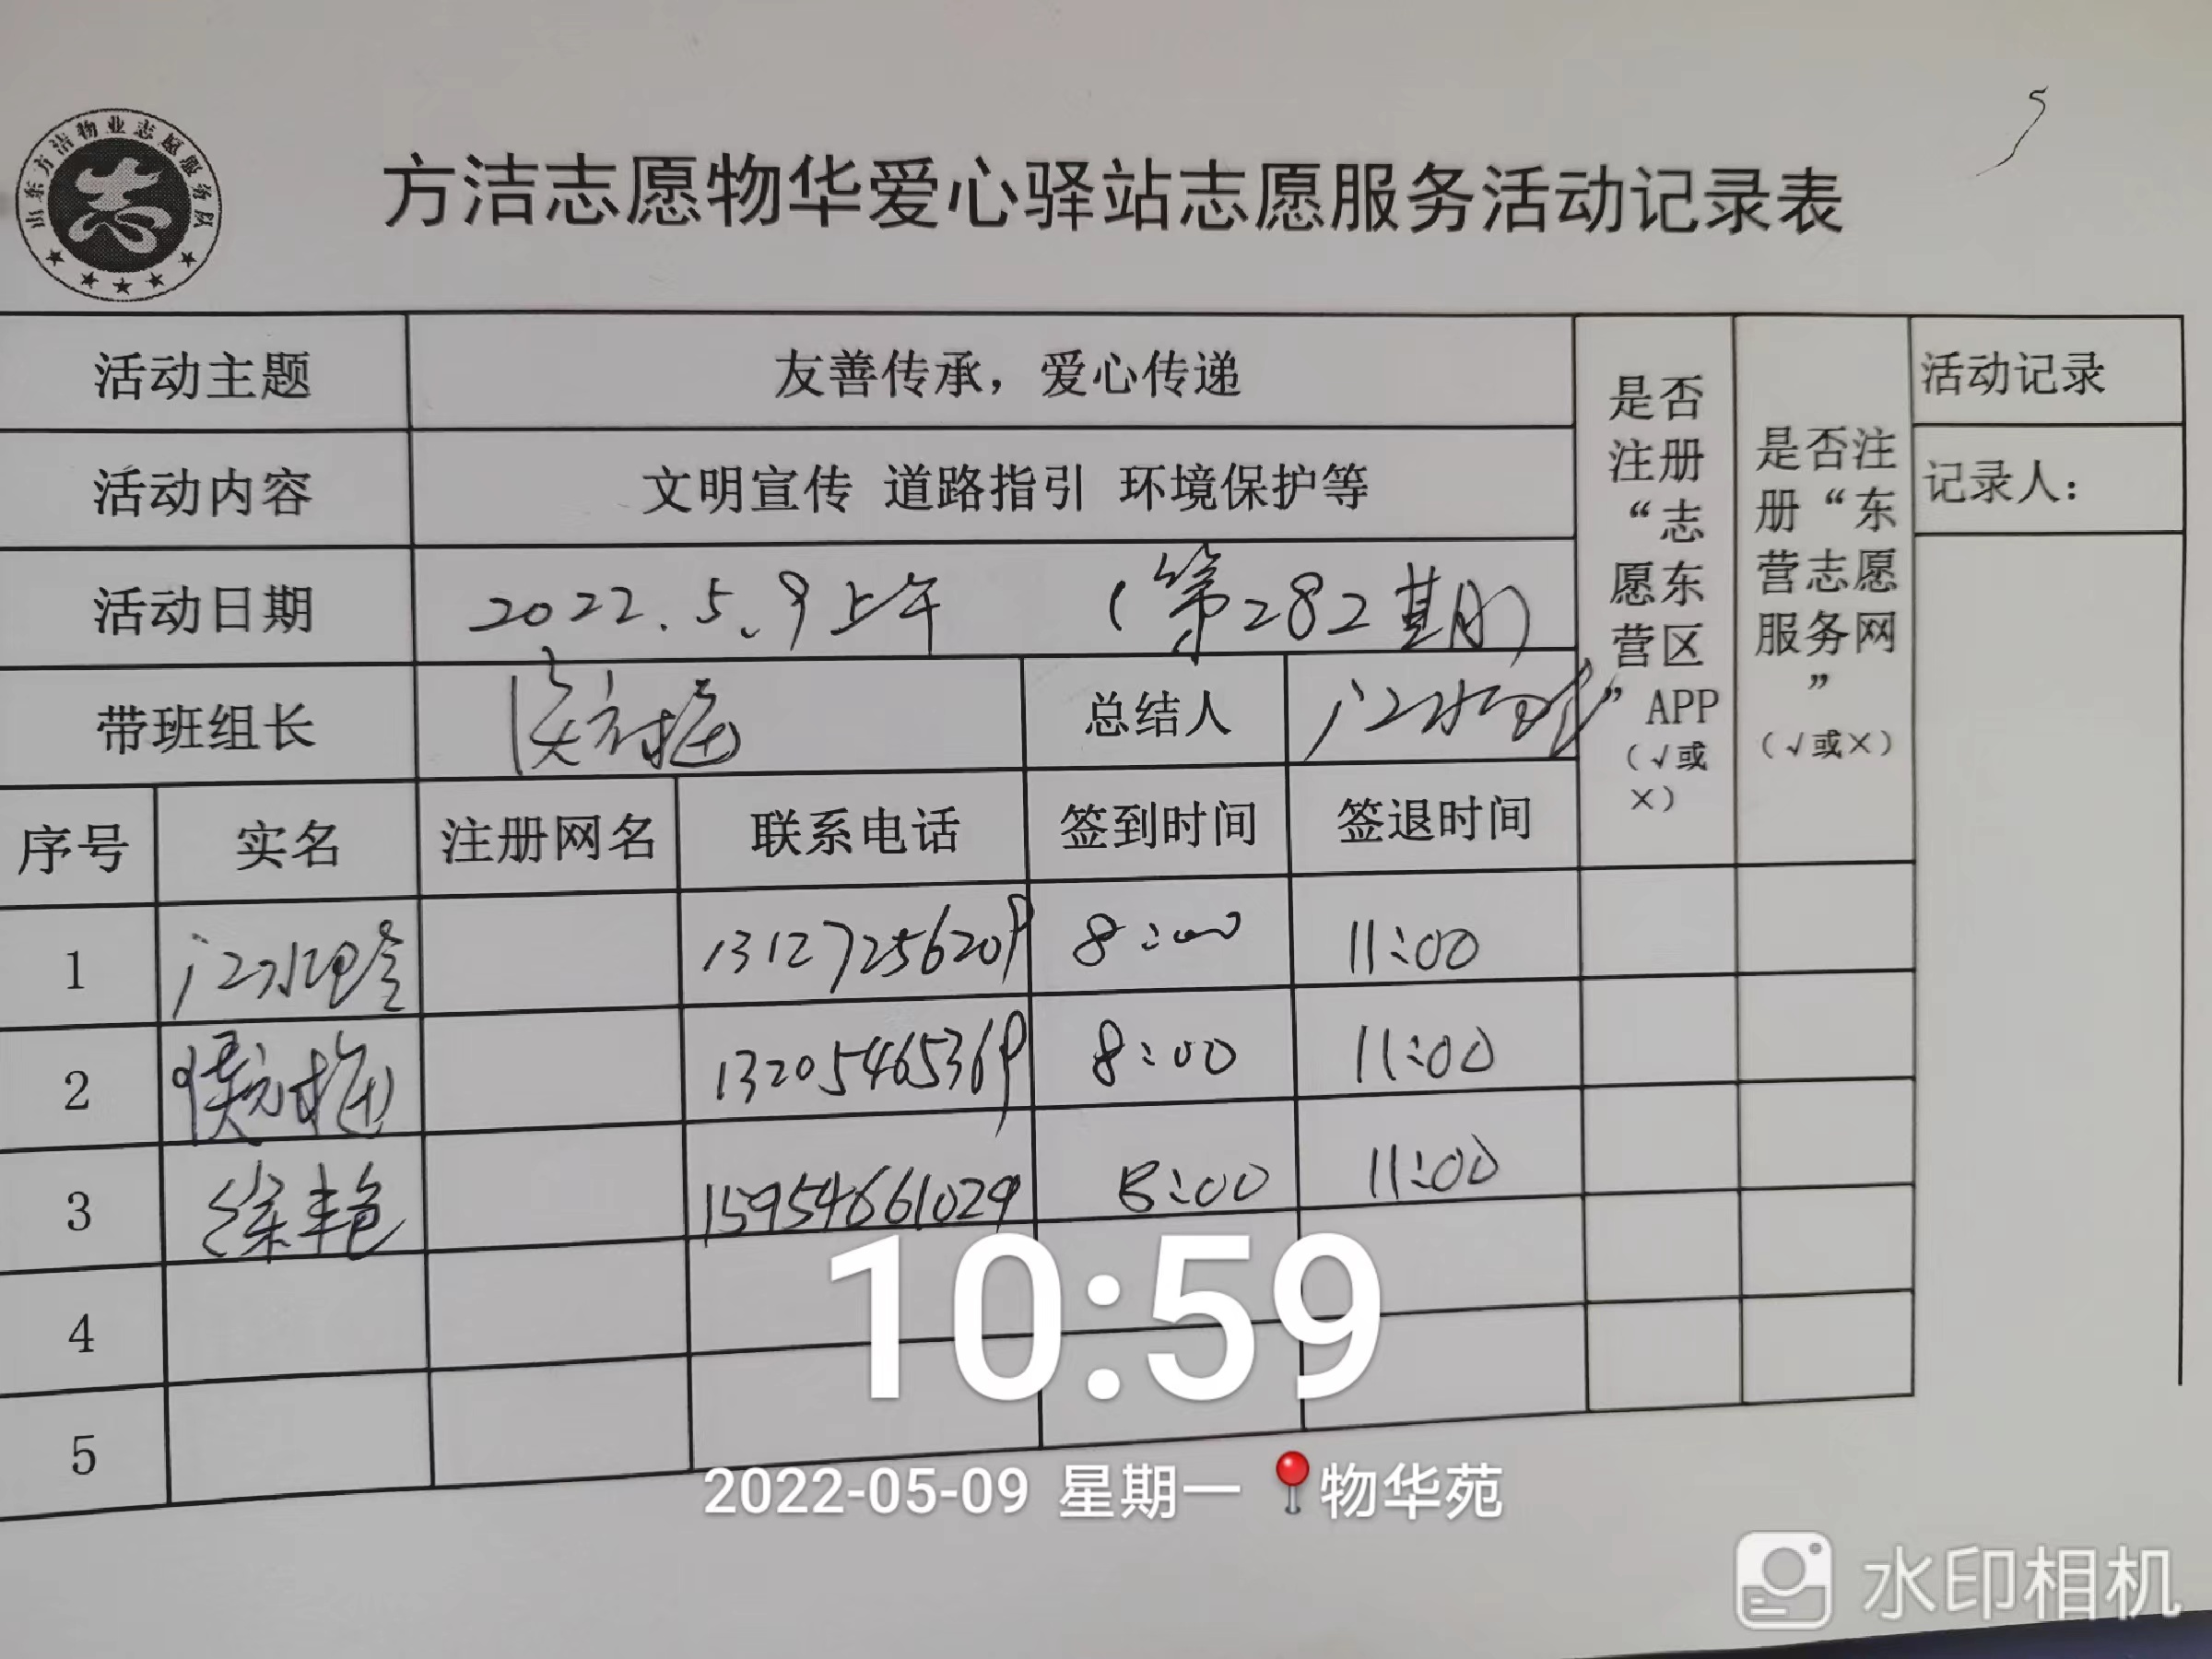 5
山东方洁物业志愿服务队
志
方洁志愿物华爱心驿站志愿服务活动记录表
活动主题 友善传承，爱心传递
活动内容 文明宣传 道路指引 环境保护等
活动日期 2022.5.9上午 （第282期）
带班组长 总结人
是否
注册
“志
愿东
营区
”APP
（√或
×）
是否注
册“东
营志愿
服务网
”
（√或×）
活动记录
记录人：
序号 实名 注册网名 联系电话 签到时间 签退时间
1 13127256209 8:00 11:00
2 13205465369 8:00 11:00
3 徐丰艳 15954661029 8:00 11:00
4
5
10:59
2022-05-09 星期一 物华苑
水印相机